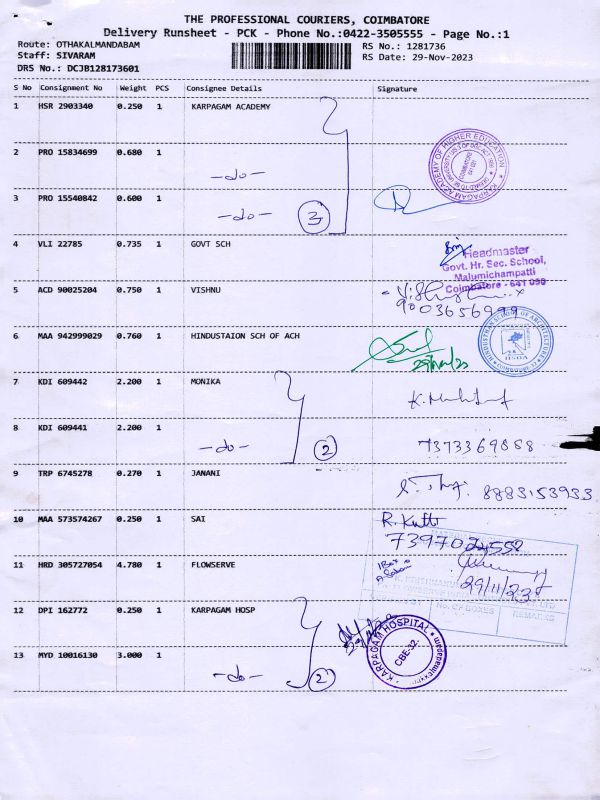 THE PROFESSIONAL COURIERS, COIMBATORE
Delivery Runsheet - PCK - Phone No.:0422-3505555 - Page No.:1
Route: OTHAKALMANDABAM
Staff: SIVARAM
DRS No.: DCJB128173601
RS No.: 1281736
RS Date: 29-Nov-2023
S No Consignment No Weight PCS Consignee Details Signature
1 HSR 2903340 0.250 1 KARPAGAM ACADEMY
2 PRO 15834699 0.680 1 -do-
KARPAGAM ACADEMY OF HIGHER EDUCATION
3 PRO 15540842 0.600 1 -do- 3
4 VLI 22785 0.735 1 GOVT SCH
Headmaster
Govt. Hr. Sec. School,
Malumichampatti
Coimbatore - 641 050
5 ACD 90025204 0.750 1 VISHNU
9003656999
6 MAA 942999029 0.760 1 HINDUSTAION SCH OF ACH
HINDUSTHAN SCHOOL OF ARCHITECTURE
7 KDI 609442 2.200 1 MONIKA
8 KDI 609441 2.200 1 -do- 2 7373369888
9 TRP 6745278 0.270 1 JANANI 8883153933
10 MAA 573574267 0.250 1 SAI R. Kutti
11 HRD 305727054 4.780 1 FLOWSERVE
29/11/23
No. OF BOXES REMARKS
12 DPI 162772 0.250 1 KARPAGAM HOSP
KARPAGAM HOSPITAL
CBE-32.
13 MYD 10016130 3.000 1 -do- 2